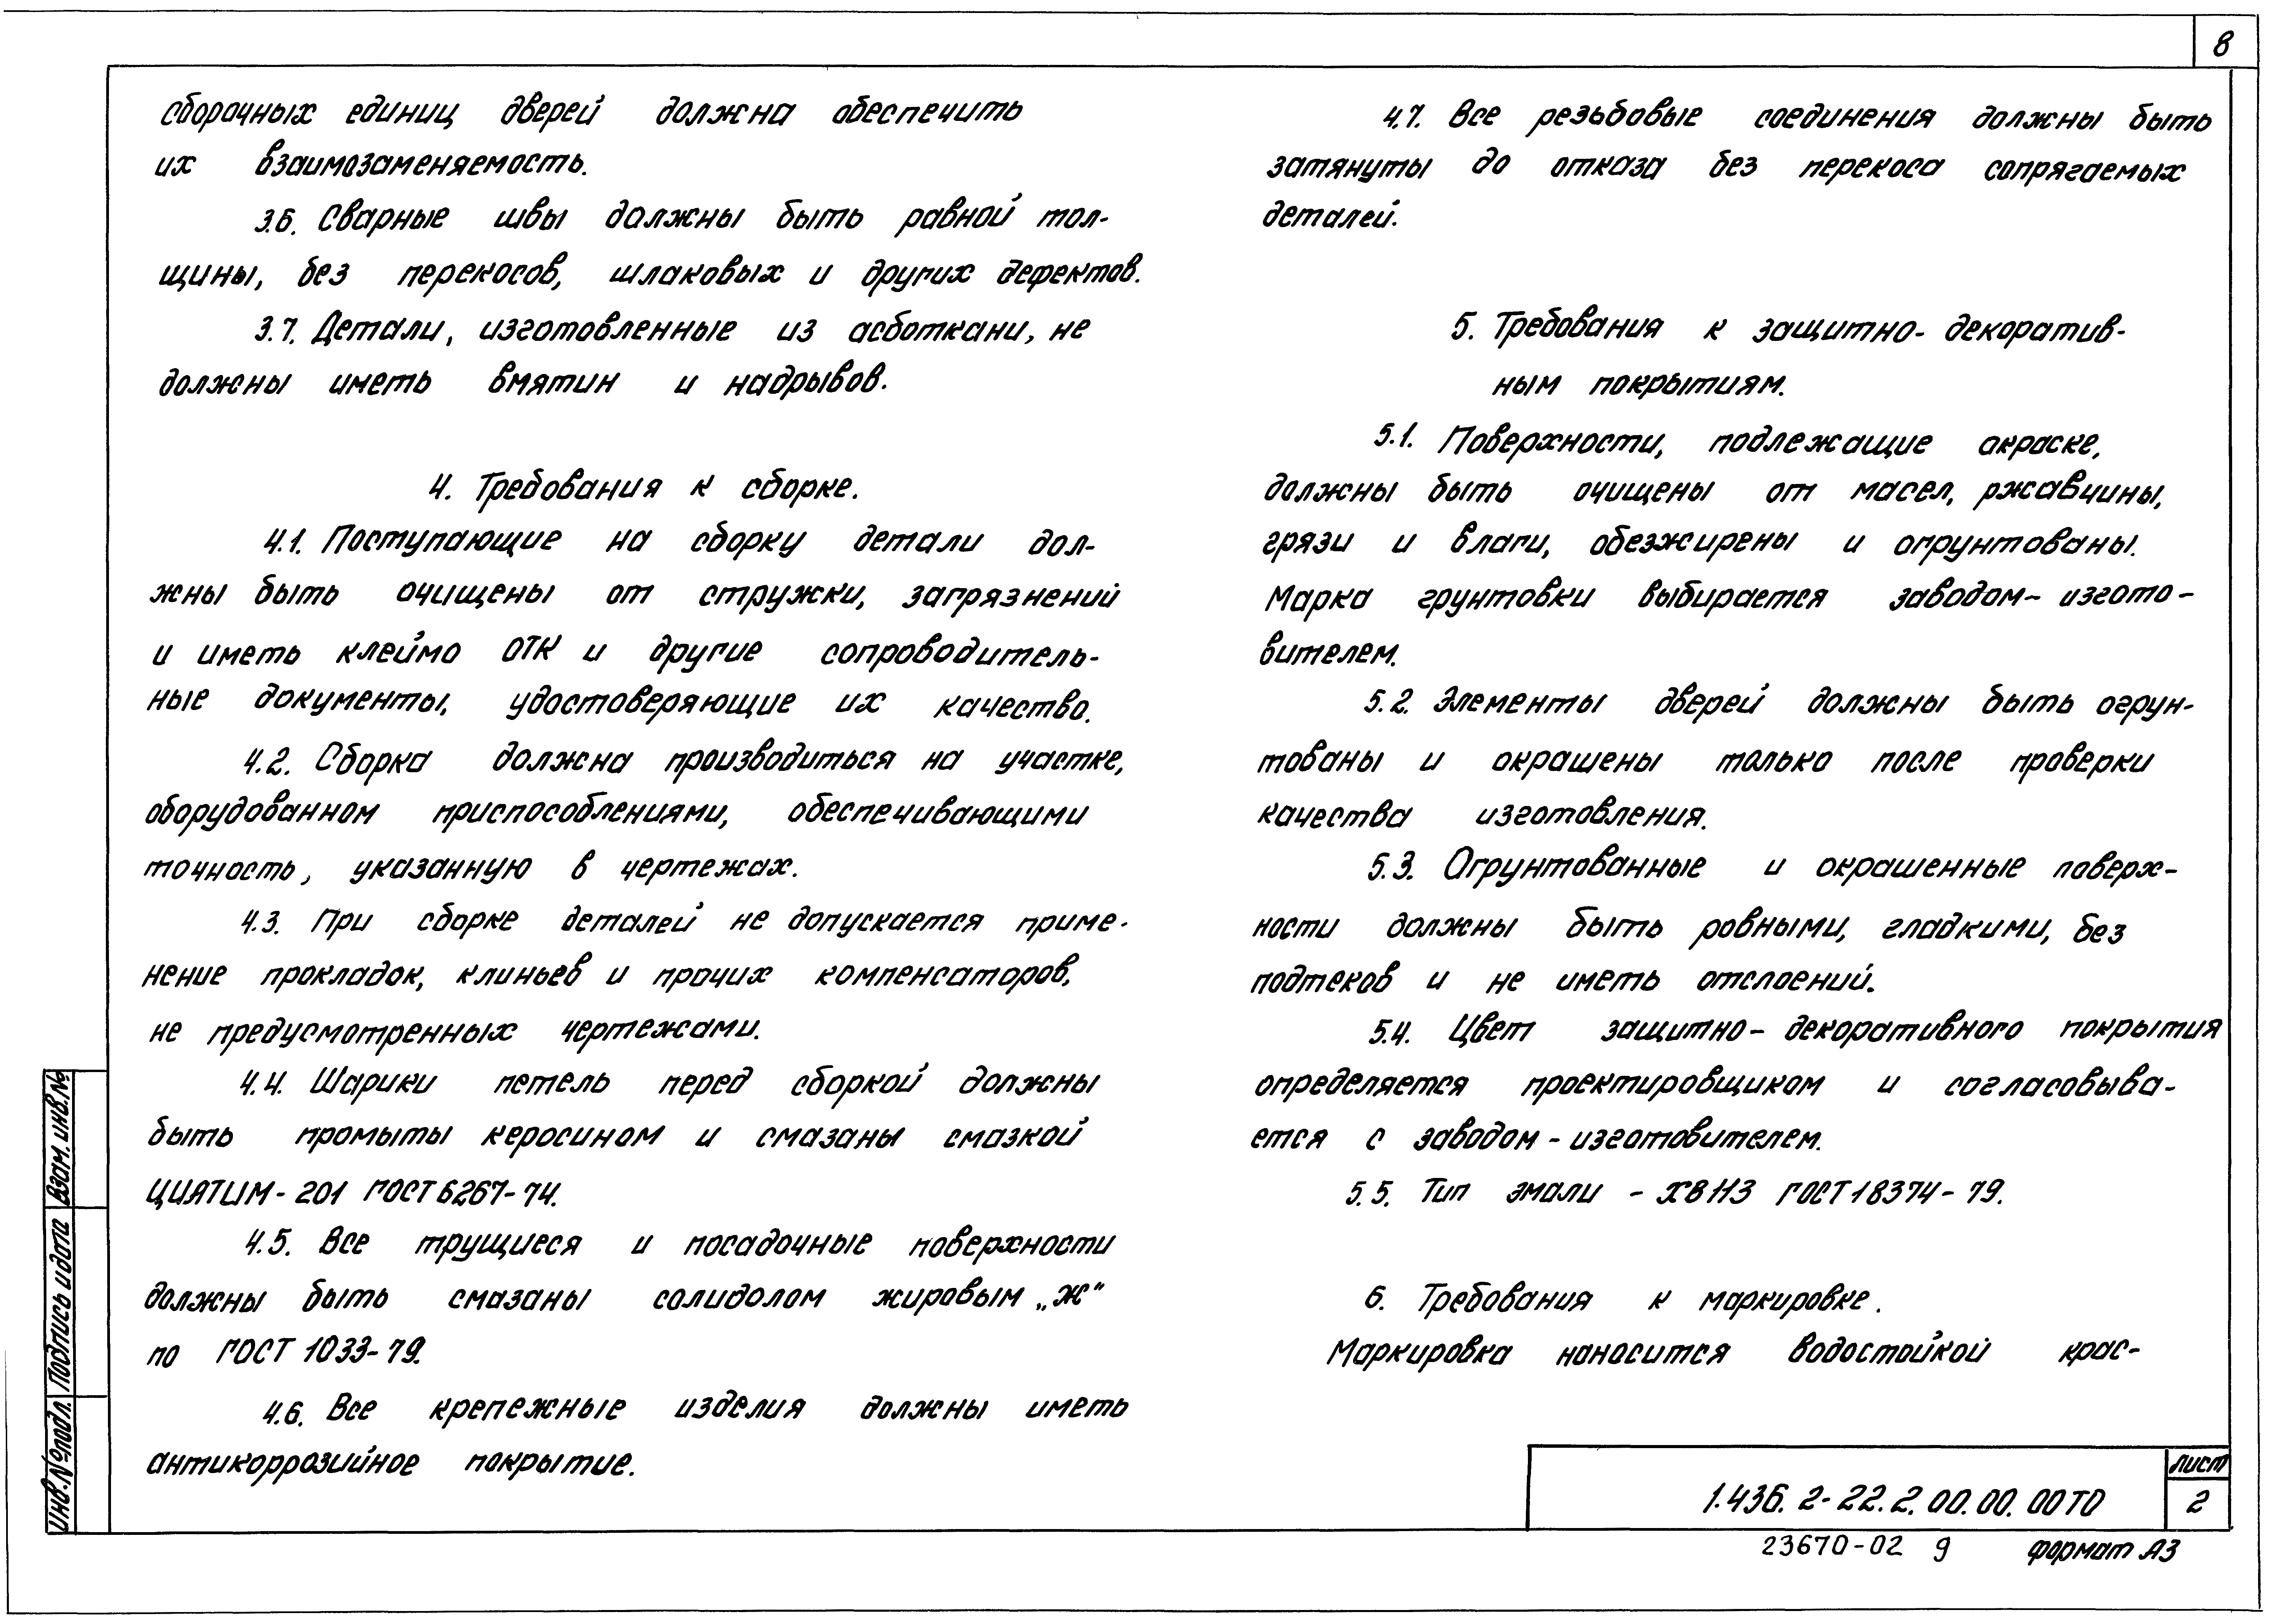 8
сборочных единиц дверей должна обеспечить
их взаимозаменяемость.
3.6. Сварные швы должны быть равной тол-
щины, без перекосов, шлаковых и других дефектов.
3.7. Детали, изготовленные из асботкани, не
должны иметь вмятин и надрывов.
4. Требования к сборке.
4.1. Поступающие на сборку детали дол-
жны быть очищены от стружки, загрязнений
и иметь клеймо ОТК и другие сопроводитель-
ные документы, удостоверяющие их качество.
4.2. Сборка должна производиться на участке,
оборудованном приспособлениями, обеспечивающими
точность, указанную в чертежах.
4.3. При сборке деталей не допускается приме-
нение прокладок, клиньев и прочих компенсаторов,
не предусмотренных чертежами.
4.4. Шарики петель перед сборкой должны
быть промыты керосином и смазаны смазкой
ЦИЯТИМ-201 ГОСТ 6267-74.
4.5. Все трущиеся и посадочные поверхности
должны быть смазаны солидолом жировым „Ж"
по ГОСТ 1033-79.
4.6. Все крепежные изделия должны иметь
антикоррозийное покрытие.
4.7. Все резьбовые соединения должны быть
затянуты до отказа без перекоса сопрягаемых
деталей.
5. Требования к защитно-декоратив-
ным покрытиям.
5.1. Поверхности, подлежащие окраске,
должны быть очищены от масел, ржавчины,
грязи и влаги, обезжирены и огрунтованы.
Марка грунтовки выбирается заводом-изгото-
вителем.
5.2. Элементы дверей должны быть огрун-
тованы и окрашены только после проверки
качества изготовления.
5.3. Огрунтованные и окрашенные поверх-
ности должны быть ровными, гладкими, без
подтеков и не иметь отслоений.
5.4. Цвет защитно-декоративного покрытия
определяется проектировщиком и согласовыва-
ется с заводом-изготовителем.
5.5. Тип эмали - ХВ113 ГОСТ 18374-79.
6. Требования к маркировке.
Маркировка наносится водостойкой крас-
Взам. инв.№
Подпись и дата
Инв.№подл.
1.436.2-22.2.00.00.00ТО
Лист
2
23670-02 9
Формат А3